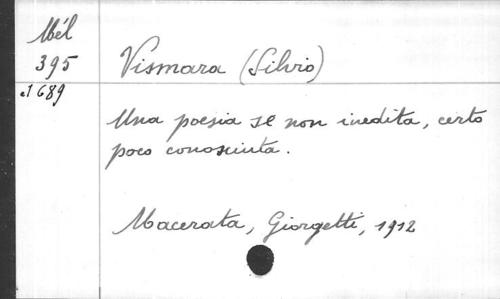 Mél
395
Vismara (Silvio)
c1689
Una poesia se non inedita, certo
poco conosciuta.
Macerata, Giorgetti, 1912